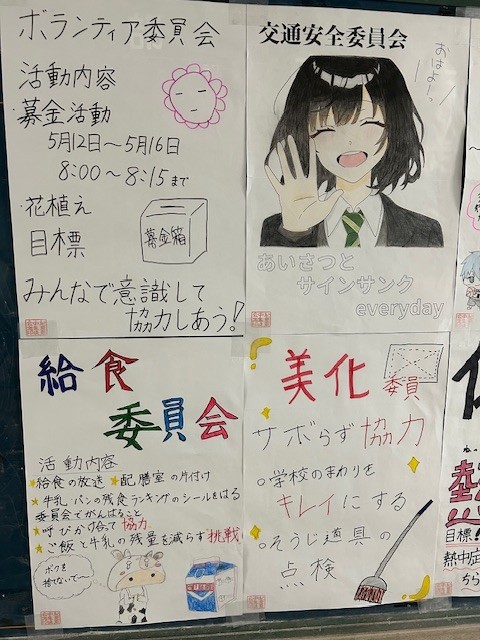 ボランティア委員会
活動内容
・募金活動
5月12日〜5月16日
8:00〜8:15まで
・花植え
目標
募金箱
みんなで意識して
協力しあう!
交通安全委員会
おはよーっ
あいさつと
サインサンク
everyday
給食
委員会
活動内容
★給食の放送 ★配膳室の片付け
★牛乳・パンの残食ランキングのシールをはる
委員会でがんばること
★呼びかけ合って協力
★ご飯と牛乳の残量を減らす挑戦!
ボクを
捨てないで〜
美化委員
サボらず協力
○学校のまわりを
キレイにする
○そうじ道具の
点検
目標!
熱中症